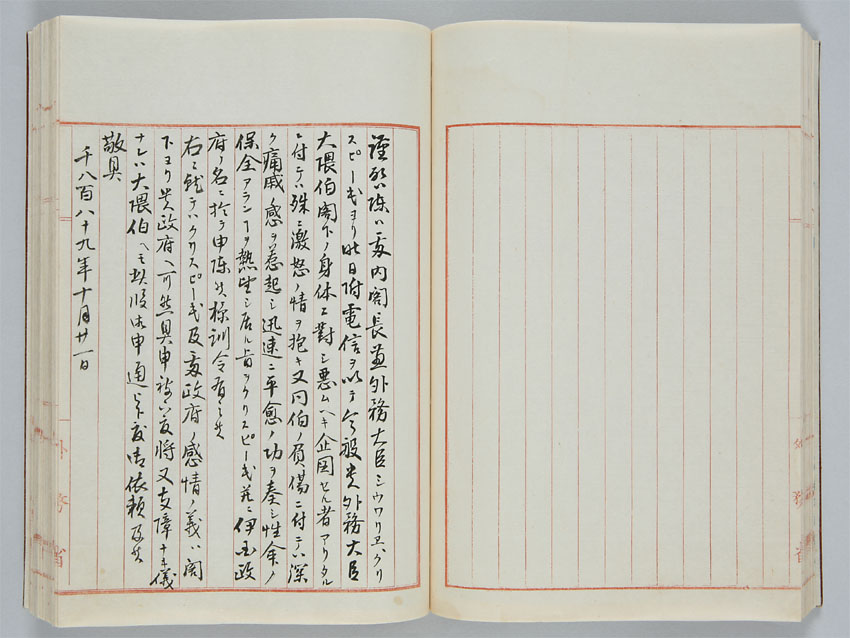 謹啓陳ハ我内閣長兼外務大臣シウワリヱ、クリ
スピー氏ヨリ昨日附電信ヲ以テ今般貴外務大臣
大隈伯閣下ノ身体ニ對シ悪ムヘキ企図セル者アリタル
ニ付テハ殊ニ激怒ノ情ヲ抱キ又同伯ノ負傷ニ付テハ深
ク痛戚ノ感ヲ惹起シ迅速ニ平愈ノ功ヲ奏シ性命ノ
保全アランヿヲ熱望シ居ル旨ヲクリスピー氏並ニ伊国政
府ノ名ニ於テ申陳候様訓令有之候
右ニ就テハクリスピー氏及我政府ノ感情ノ義ハ閣
下ヨリ貴政府ヘ可然具申被下度将又支障ナキ儀
ナレハ大隈伯ヘモ其段御申通シ下度御依頼及候
敬具
千八百八十九年十月廿一日
外務省
外務省